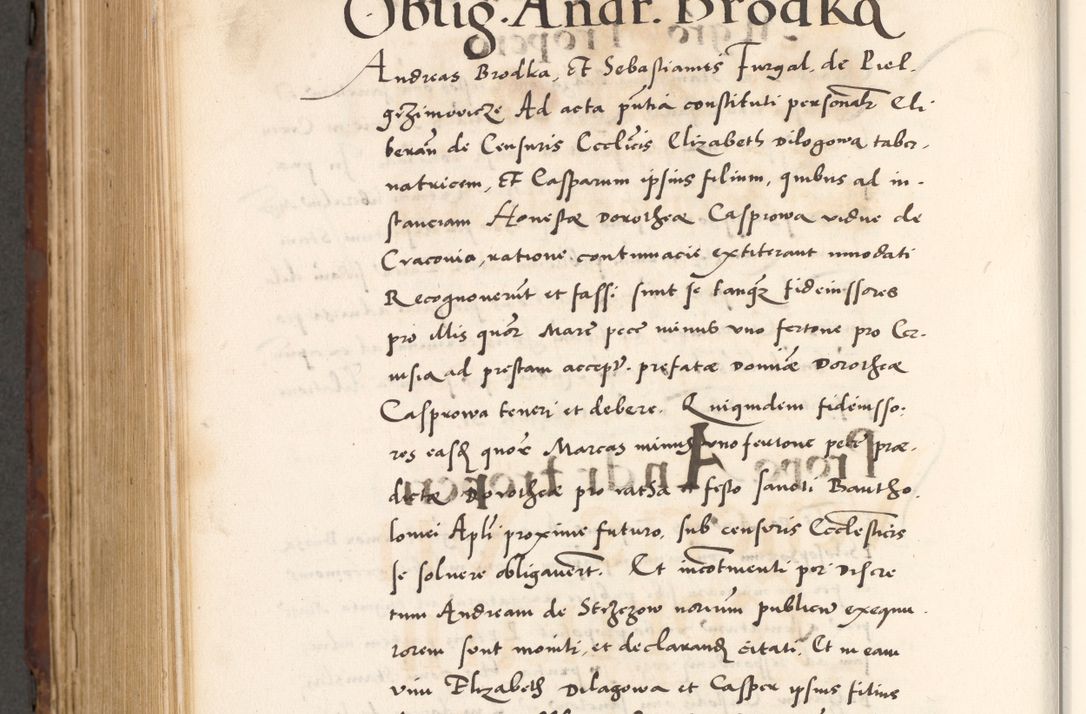 Oblig. Andr. Brodka
Andreas Brodka, Et Sebastianus Furgal, de Piel-
grzimovicze Ad acta pñtia constituti personalr Eli-
berañ de Censuris Ecclĩcis Elizabeth Dilogowa taber-
natricem, Et Casparum ipsius filium, quibus ad in-
stanciam Honestæ Dorotheæ Casprowa vidue de
Cracovia, ratione contumacie extiterant innodati
Recognoverũt et fassi sunt se tanq̃ fideiussores
pro illis quor Marc pece minus uno fertone pro Cer-
uisia ad prestam accept. prefatæ Dominæ Dorotheæ
Casprowa teneri et debere. Quiquidem fideiusso-
res easd quor Marcas minus uno fertone pece præ-
dictæ Dorotheæ pro ratha et festo sancti Bartho-
lomei Apli proxime futuro, sub censuris Ecclesticis
se soluere obligauerũt. Et incotinenti per Discre
tum Andream de Strzezow norium publicu exequu-
torem sunt moniti, et declarand citati. Et in eam
vim Elizabeth Dilagowa et Casper ipsius filius